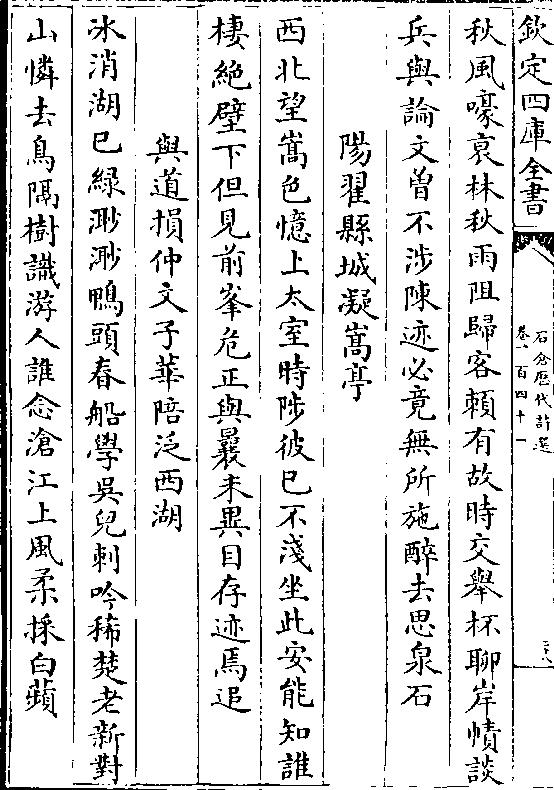 欽定四庫全書
石倉歷代詩選
卷一百四十一
秋風嚎衰林秋雨阻歸客頼有故時交舉杯聊岸幘談
兵與論文曽不涉陳迹必竟無所施醉去思泉石
陽翟縣城凝嵩亭
西北望嵩色憶上太室時陟彼已不淺坐此安能知誰
棲絶壁下但見前峯危正與曩未異目存迹焉追
與道損仲文子華陪泛西湖
冰消湖已緑渺渺鴨頭春船學吳兒刺吟稀楚老新對
山憐去鳥隔樹識游人誰念滄江上風柔採白蘋